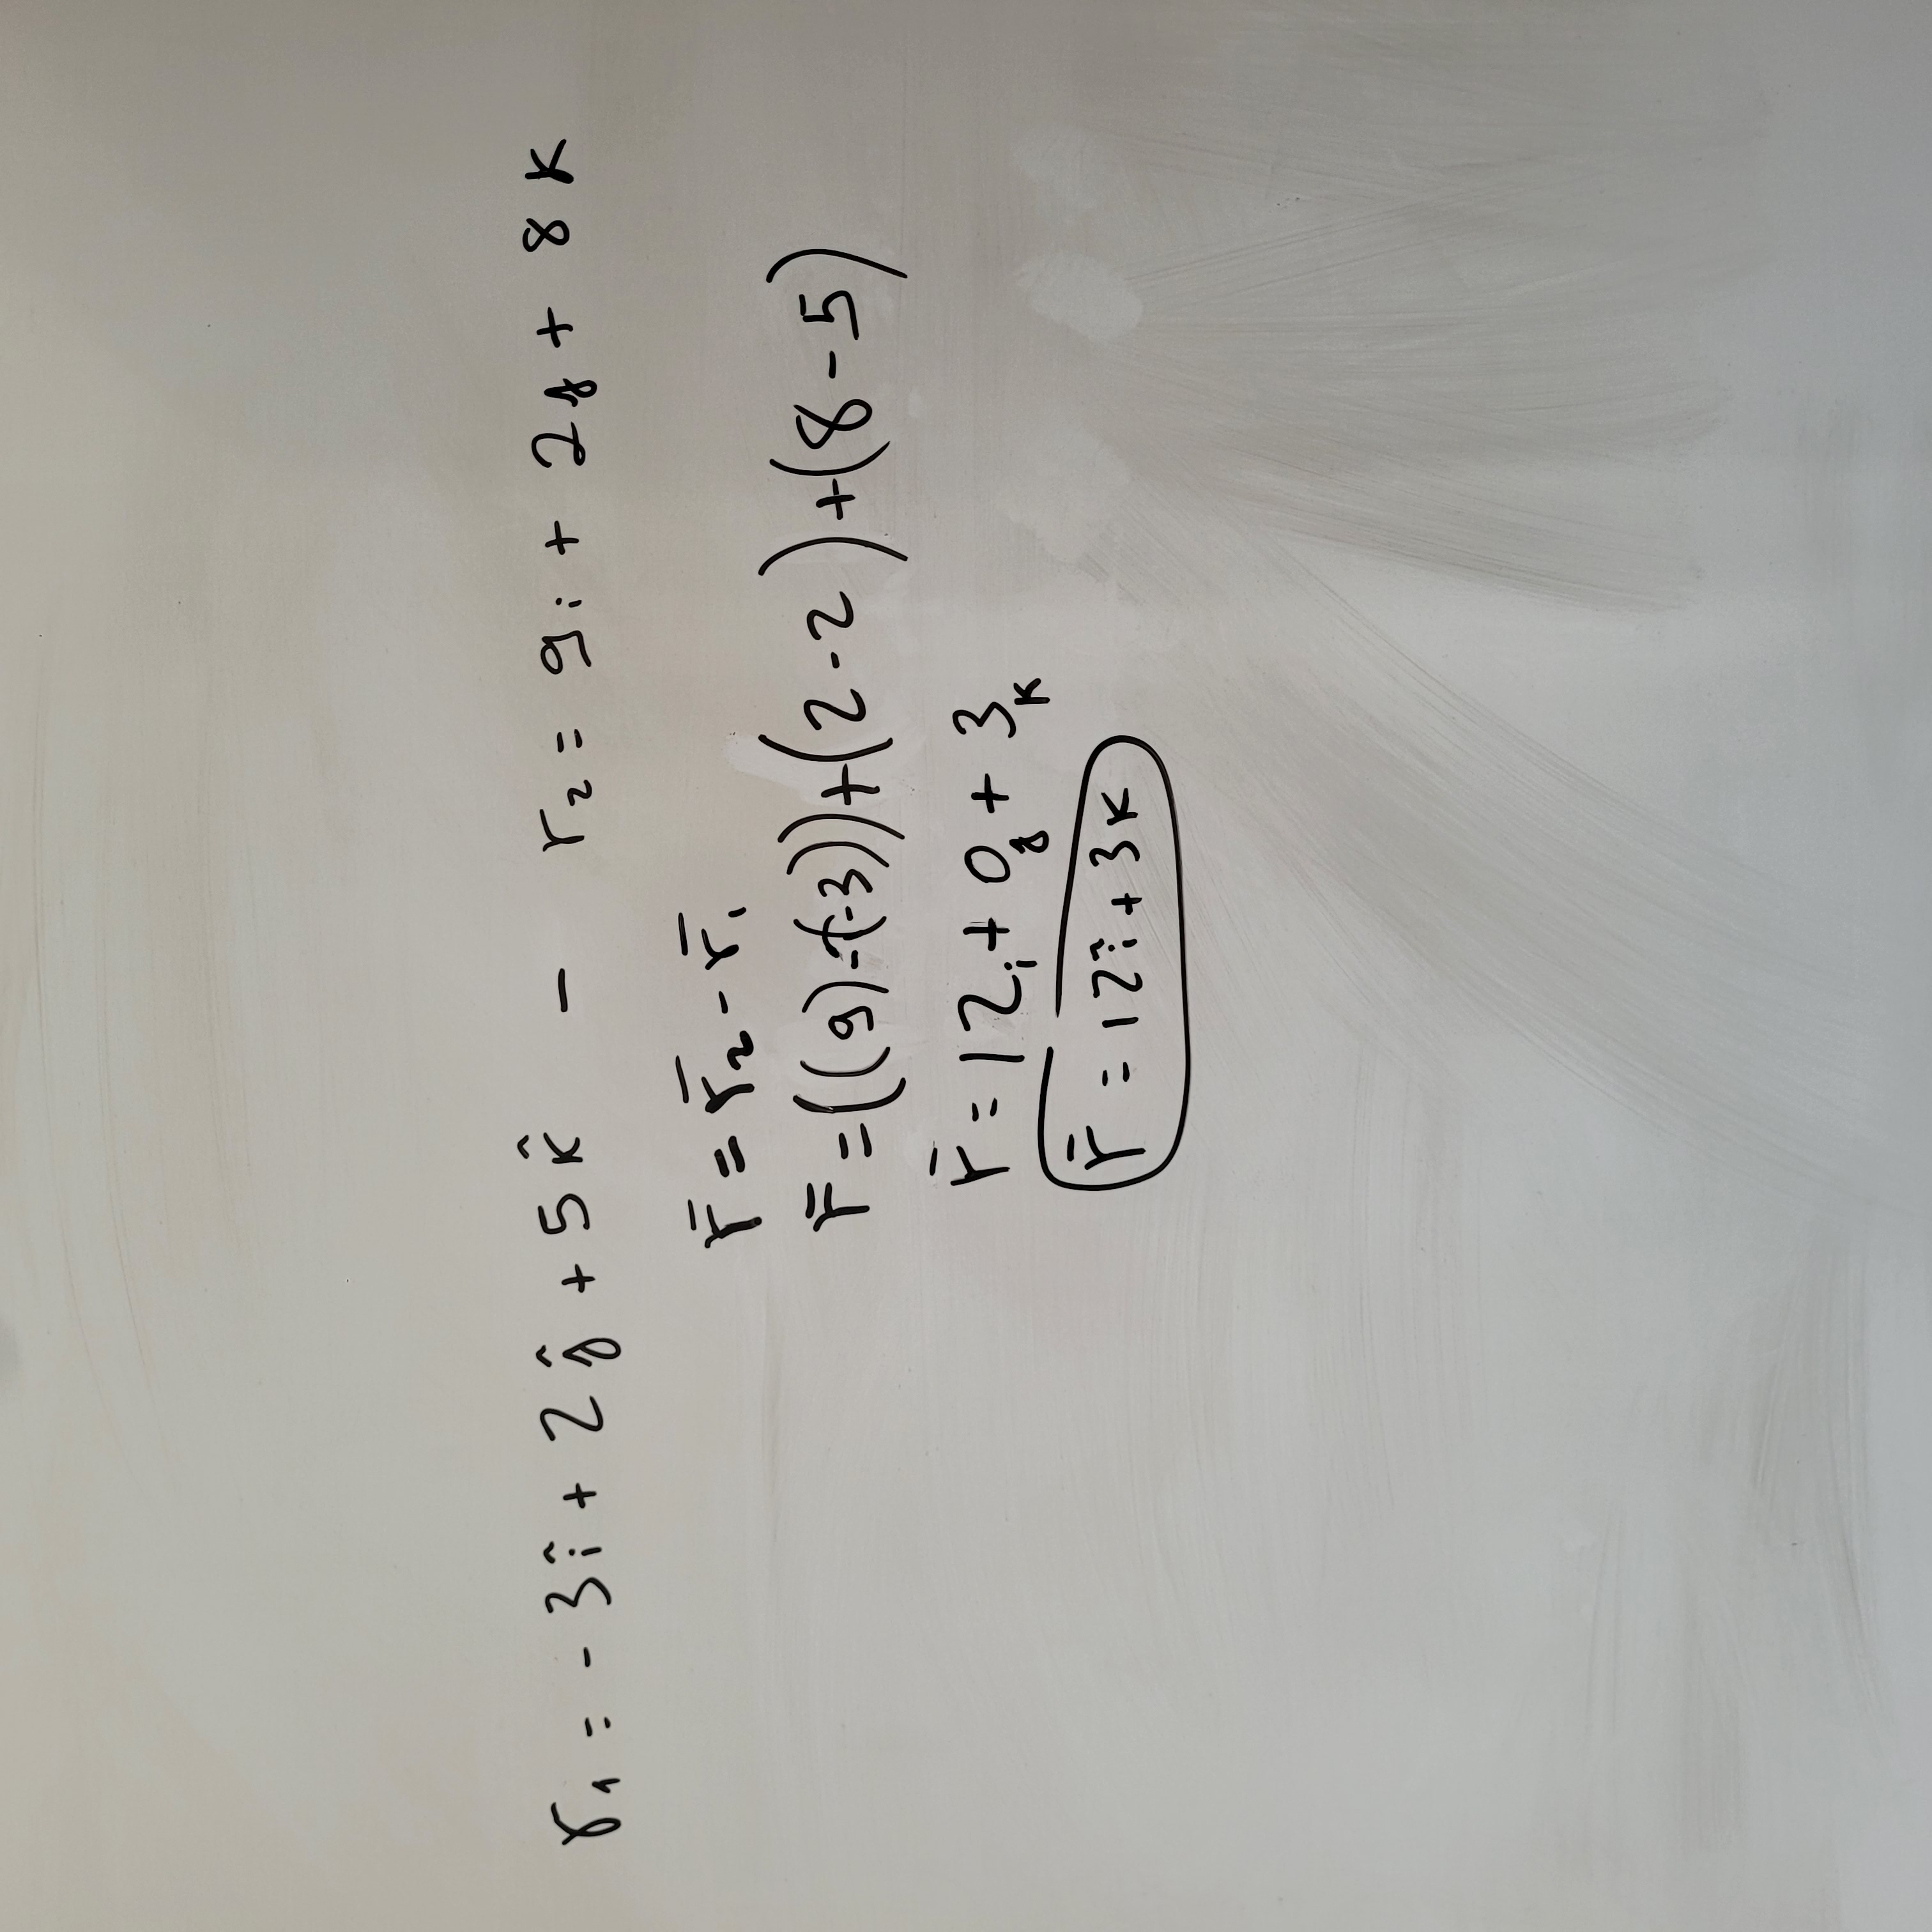 r₁ = - 3î + 2ĵ + 5k̂ - r₂ = 9i + 2j + 8k
r̄ = r̄₂ - r̄₁
r̄ = ((9)-(-3))+(2-2)+(8-5)
r̄ = 12i + 0j + 3k
r̄ = 12î + 3k